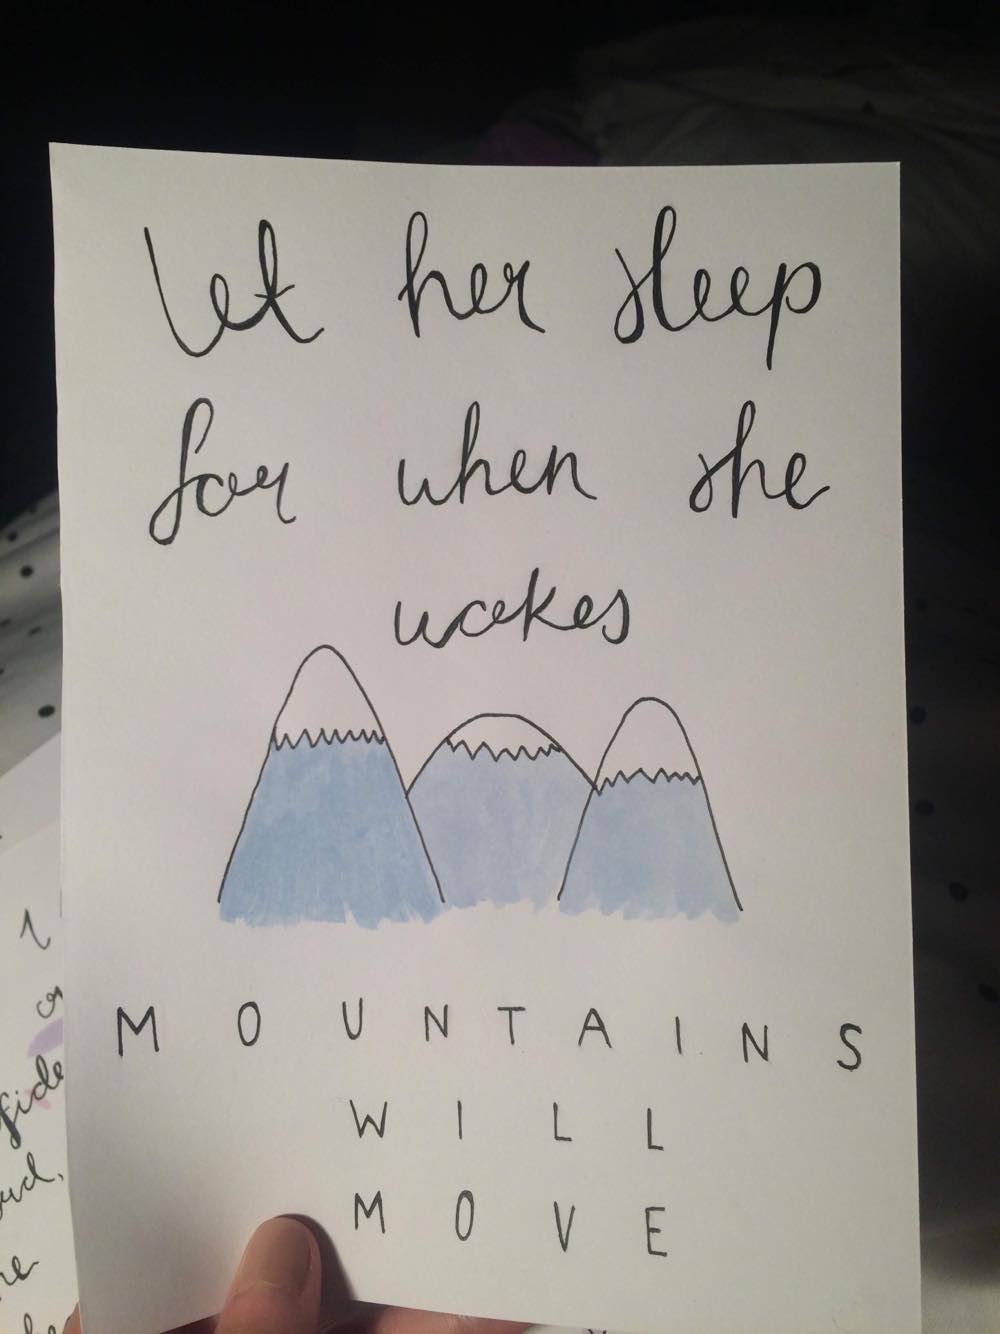 Let her sleep
for when she
wakes
MOUNTAINS
WILL
MOVE